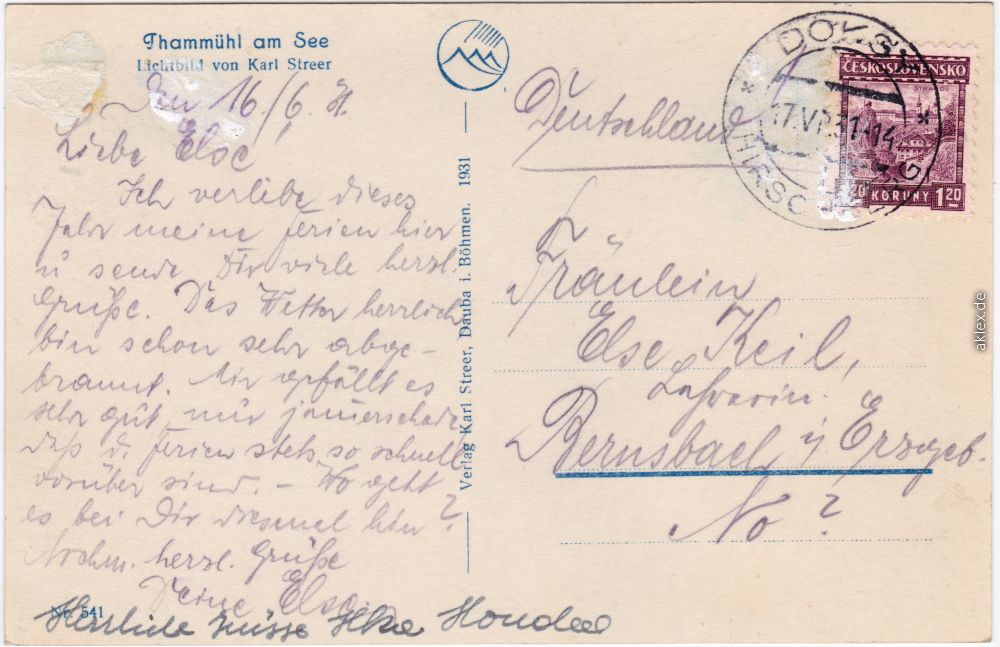 Thammühl am See
Lichtbild von Karl Streer
Den 16/6. 31.
Liebe Else
Ich verlebe dieses
Jahr meine Ferien hier
u sende Dir viele herzl.
Grüße. Das Wetter herrlich
bin schon sehr abge-
brannt. Mir gefällt es
sehr gut nur jammerschade
daß d. Ferien stets so schnell
vorüber sind. - Wo geht
es bei Dir diesmal hin?
Nochm. herzl. Grüße
Deine Else
Nr. 541
Herzliche Grüsse
Verlag Karl Streer, Dauba i. Böhmen. 1931
Deutschland
DOKSY
17.VI.31-14
HIRSCHBERG
ČESKOSLOVENSKO
STRAHOV
KORUNY 1 20
Fräulein
Else Keil,
Lehrerin.
Bernsbach i/ Erzgeb.
No ?
aklex.de